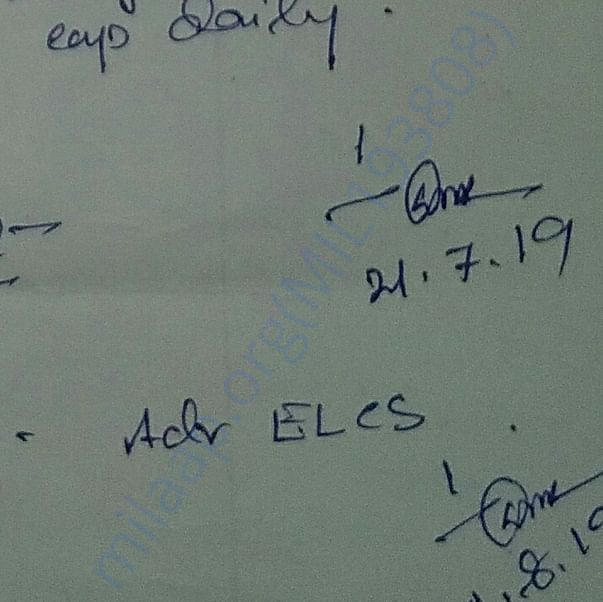 eays daily.
1
21.7.19
Adv ELCS.
1
.8.19
milaap.org(MIL193808)